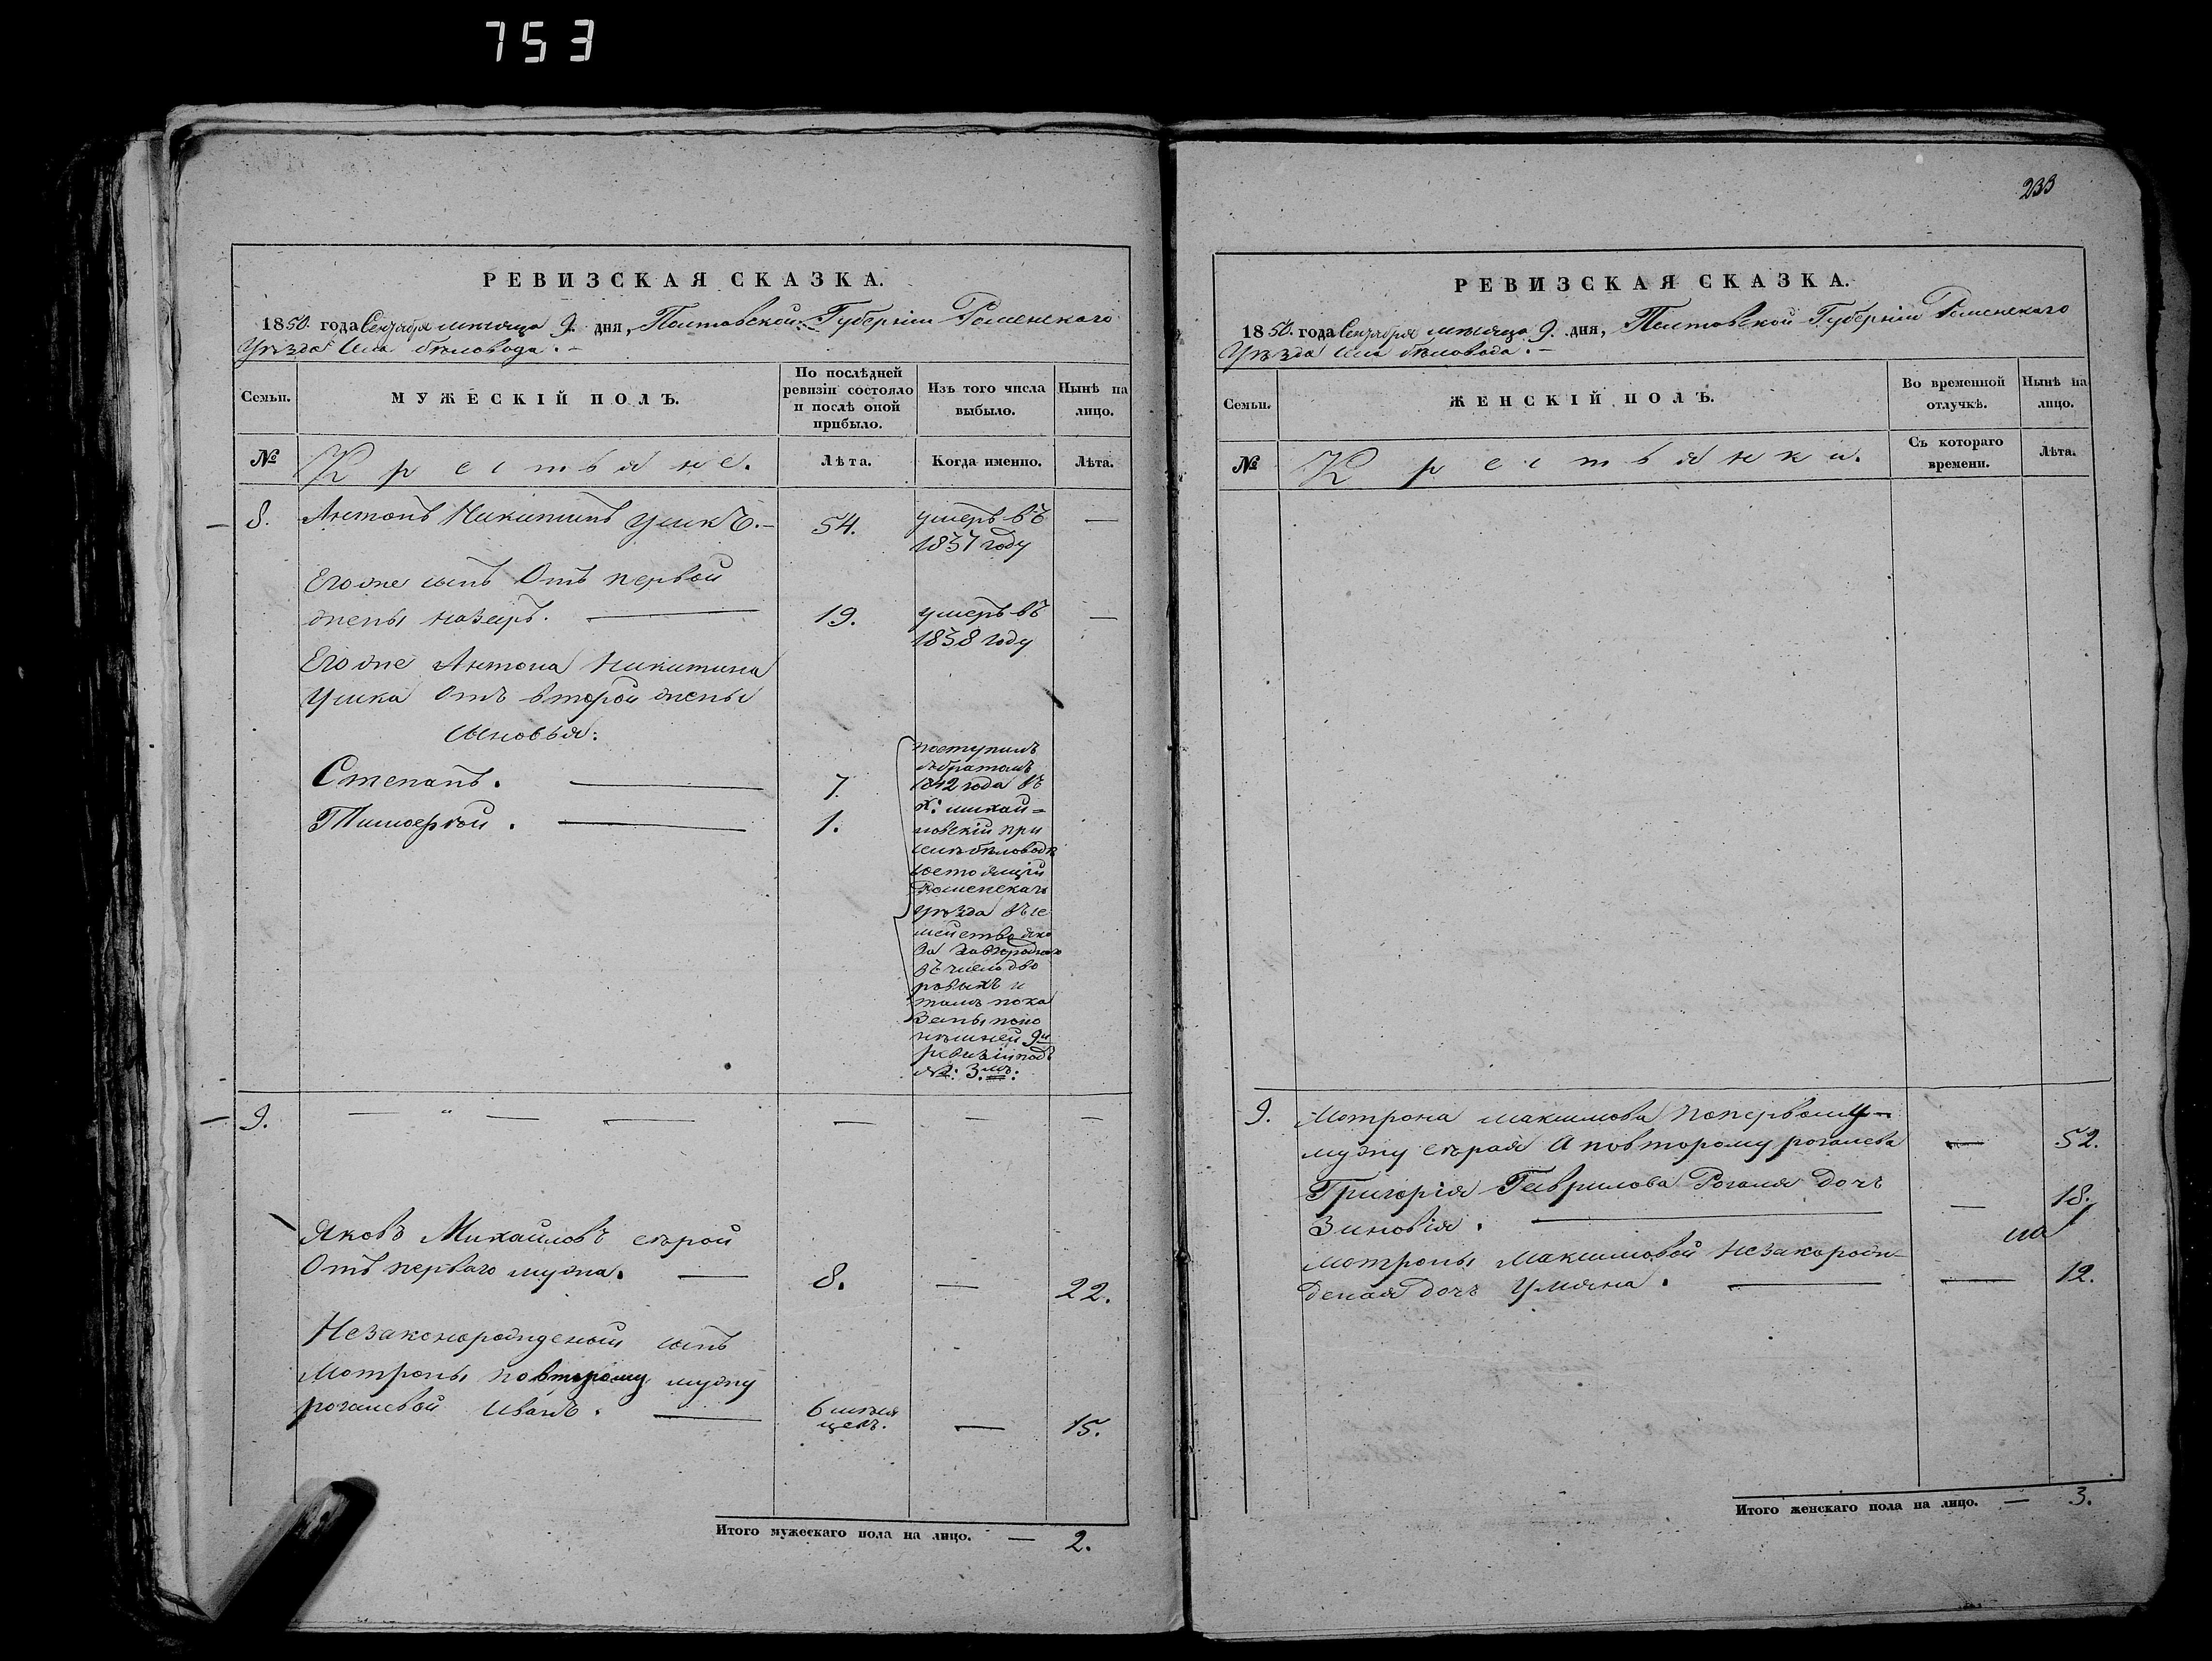 753
РЕВИЗСКАЯ СКАЗКА.
1850. года Сентября месяца 9. дня, Полтавской Губерніи Роменскаго
Уѣзда Села бѣловода.
Семьи.
МУЖЕСКІЙ ПОЛЪ.
По послѣдней
ревизіи состояло
и послѣ оной
прибыло.
Изъ того числа
выбыло.
Нынѣ на
лицо.
№
Крестьяне.
Лѣта.
Когда именно.
Лѣта.
8. Антонъ Никитинъ 54. умеръ въ —
1837 году
Егоже сынъ Отъ первой
жены Назаръ. 19. умеръ въ —
1838 году
Егоже Антона Никитина
Отъ второй жены
сыновья:
Степанъ. 7.
Тимофѣй. 1.
поступилъ
съ братомъ
1842 года въ
х: михай=
ловскій при
селѣ бѣловодѣ
состоящій
Роменскаго
уѣзда въ се
мейство Яко
ва
въ число дво
ровыхъ и
тамъ пока
заны по но
нѣшней 9й
ревизіи подъ
№: 3.мъ:
9. — " — — — — —
Яковъ Михайловъ сѣрой
Отъ перваго мужа. — 8. — 22.
Незаконорожденой сынъ
Мотроны повторому мужу
рогалевой Иванъ. — 6 мѣся
цевъ. — 15.
Итого мужескаго пола на лицо. — 2.
233
РЕВИЗСКАЯ СКАЗКА.
1850. года Сентября месяца 9. дня, Полтавской Губерніи Роменскаго
Уѣзда Села бѣловода.
Семьи.
ЖЕНСКІЙ ПОЛЪ.
Во временной
отлучкѣ.
Нынѣ на
лицо.
№
Крестьянки.
Съ котораго
времени.
Лѣта.
9. Мотрона максимова попервому
мужу сѣрая А повторому рогалева — 52.
Григорія Гаврилова Рогаля дочъ
Зиновія. — — 18.
Мотроны Максимовой незакорож-
деная дочъ Уляна. — — 12.
Итого женскаго пола на лицо. — 3.